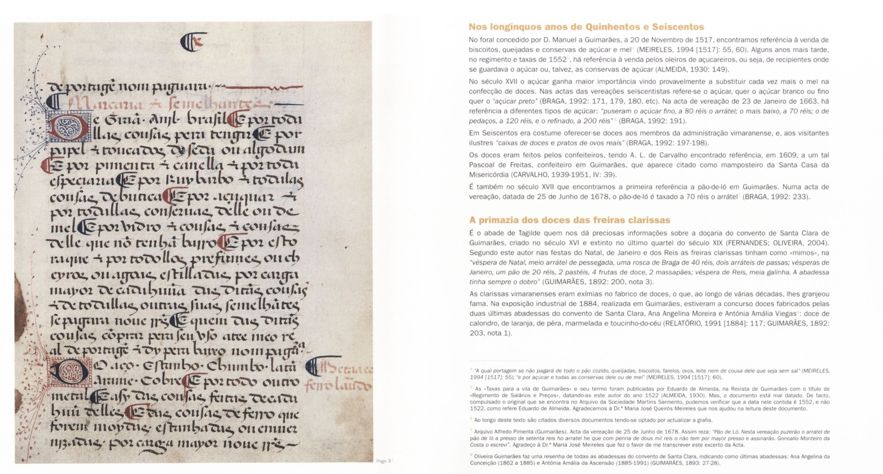 de portagẽ nom paguara.
Marcaria & semelhantes
De Graã. Anil. brasil & por todallas cousas pera tengir & por
papel & toucados de sedu ou algodam
& por pimenta & canella & por toda
especiaria & por Ruy barbo & todallas
cousas de butica & por açuquar &
por todallas conservas delle ou de
mel & por vidro & cousas
delle que nõ tenhã barro & por esto
raque & por todollos perfumes ou
ou agoas estilladas por carga
mayor de cadahuũa das ditas cousas
& de todallas outras suas semelhãtes
se pagara nove rrs & quem das ditas
cousas cõprar pera seu uso atee meo rreal
de portagẽ & dy pera baixo nom pagara
Daço. Estanho. Chumbo. latã
Arame. Cobre & por todo outro
metal & assy das cousas feitas de cada
huũ delles & das cousas de ferro que
forem moydas estanhadas ou
por carga mayor nove rrs
ferro laurado
Page 3
Nos longínquos anos de Quinhentos e Seiscentos
No foral concedido por D. Manuel a Guimarães, a 20 de Novembro de 1517, encontramos referência à venda de
biscoitos, queijadas e conservas de açúcar e mel (MEIRELES, 1994 [1517]: 55, 60). Alguns anos mais tarde,
no regimento e taxas de 1552, há referência à venda pelos oleiros de açucareiros, ou seja, de recipientes onde
se guardava o açúcar ou, talvez, as conservas de açúcar (ALMEIDA, 1930: 149).
No século XVII o açúcar ganha maior importância vindo provavelmente a substituir cada vez mais o mel na
confecção de doces. Nas actas das vereações seiscentistas refere-se o açúcar, quer o açúcar branco ou fino
quer o "açúcar preto" (BRAGA, 1992: 171, 179, 180, etc). Na acta de vereação de 23 de Janeiro de 1663, há
referência a diferentes tipos de açúcar: "puseram o açúcar fino, a 80 réis o arrátel; o mais baixo, a 70 réis; o de
pedaços, a 120 réis, e o refinado, a 200 réis" (BRAGA, 1992: 191).
Em Seiscentos era costume oferecer-se doces aos membros da administração vimaranense, e, aos visitantes
ilustres "caixas de doces e pratos de ovos reais" (BRAGA, 1992: 197-198).
Os doces eram feitos pelos confeiteiros, tendo A. L. de Carvalho encontrado referência, em 1609, a um tal
Pascoal de Freitas, confeiteiro em Guimarães, que aparece citado como mamposteiro da Santa Casa da
Misericórdia (CARVALHO, 1939-1951, IV: 39).
É também no século XVII que encontramos a primeira referência a pão-de-ló em Guimarães. Numa acta de
vereação, datada de 25 de Junho de 1678, o pão-de-ló é taxado a 70 réis o arrátel (BRAGA, 1992: 233).
A primazia dos doces das freiras clarissas
É o abade de Tagilde quem nos dá preciosas informações sobre a doçaria do convento de Santa Clara de
Guimarães, criado no século XVI e extinto no último quartel do século XIX (FERNANDES; OLIVEIRA, 2004).
Segundo este autor nas festas do Natal, de Janeiro e dos Reis as freiras clarissas tinham como «mimos», na
"véspera de Natal, meio arrátel de pessegada, uma rosca de Braga de 40 réis, dois arráteis de passas; vésperas de
Janeiro, um pão de 20 réis, 2 pastéis, 4 frutas de doce, 2 massapães; véspera de Reis, meia galinha. A abadessa
tinha sempre o dobro" (GUIMARÃES, 1892: 200, nota 3).
As clarissas vimaranenses eram exímias no fabrico de doces, o que, ao longo de várias décadas, lhes granjeou
fama. Na exposição industrial de 1884, realizada em Guimarães, estiveram a concurso doces fabricados pelas
duas últimas abadessas do convento de Santa Clara, Ana Angelina Moreira e Antónia Amália Viegas: doce de
calondro, de laranja, de pêra, marmelada e toucinho-do-céu (RELATÓRIO, 1991 [1884]: 117; GUIMARÃES, 1892:
203, nota 1).
"A qual portagem se não pagará de todo o pão cozido, queijadas, biscoitos, farelos, ovos, leite nem de cousa dele que seja sem sal" (MEIRELES,
1994 [1517]: 55); "e por açúcar e todas as conservas dele ou de mel" (MEIRELES, 1994 [1517]: 60).
As «Taxas para a vila de Guimarães» e seu termo foram publicadas por Eduardo de Almeida, na Revista de Guimarães com o título de
«Regimento de Salários e Preços», datando-as este autor do ano 1522 (ALMEIDA, 1930). Mas, o documento está mal datado. De facto,
compulsado o original que se encontra no Arquivo da Sociedade Martins Sarmento, pudemos verificar que a data nele contida é 1552, e não
1522, como refere Eduardo de Almeida. Agradecemos à Dr.ª Maria José Queirós Meireles que nos ajudou na leitura deste documento.
Ao longo deste texto são citados diversos documentos tendo-se optado por actualizar a grafia.
Arquivo Alfredo Pimenta (Guimarães). Acta da vereação de 25 de Junho de 1678. Assim reza: "Pão de Ló. Nesta vereação puzerão o arratel de
pão de ló a presso de setenta reis ho arratel he que com penna de dous mil reis o não tem por mayor presso e assinarão. Goncallo Monteiro da
Costa o escrevi". Agradeço à Dr.ª Maria José Meireles que fez o favor de me transcrever este excerto da Acta.
Oliveira Guimarães faz uma resenha de todas as abadessas do convento de Santa Clara, indicando como últimas abadessas: Ana Angelina da
Conceição (1862 a 1885) e Antónia Amália da Ascensão (1885-1991) (GUIMARÃES, 1893: 27-28).